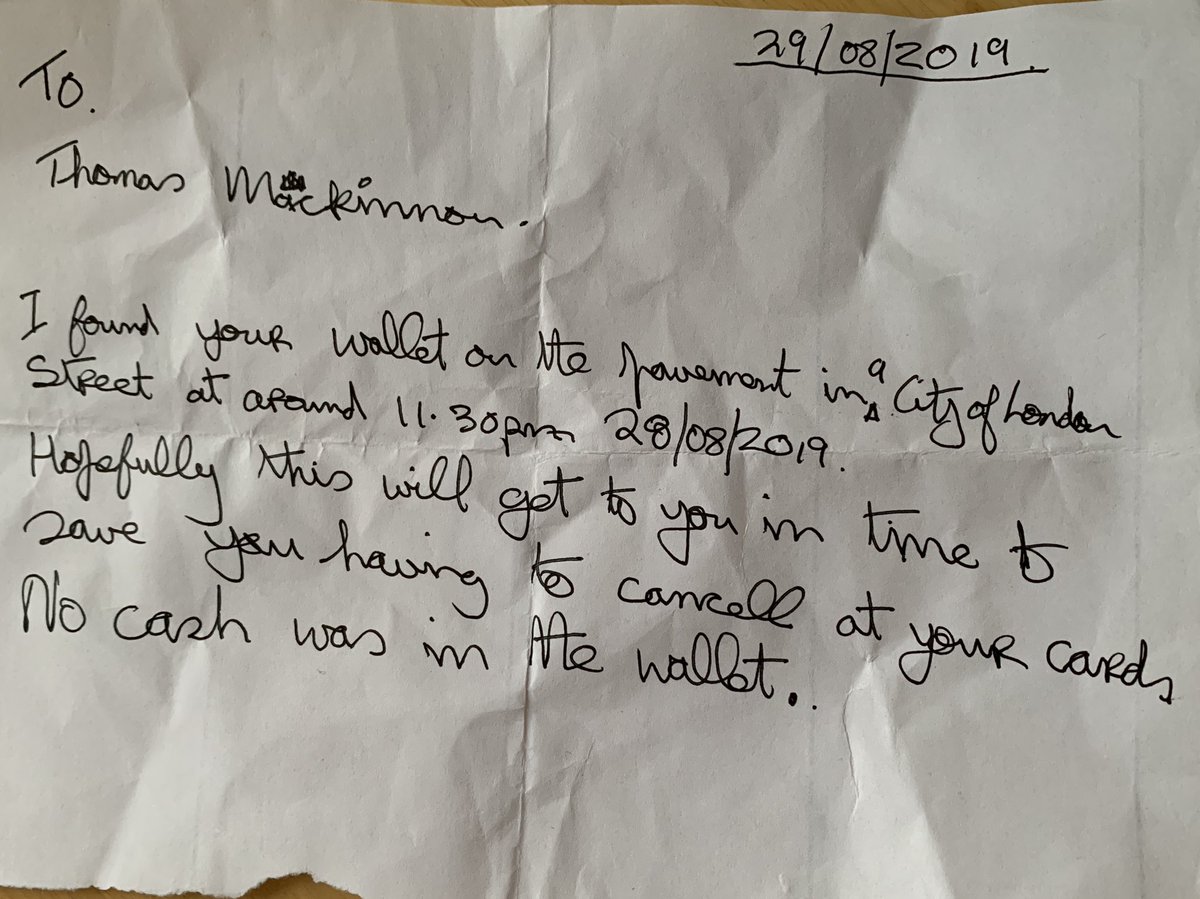 29/08/2019.
To.
Thomas Mackinnon.
I found your wallet on the pavement in a City of London
Street at around 11.30pm 28/08/2019.
Hopefully this will get to you in time to
save you having to cancell at your cards
No cash was in the wallet.